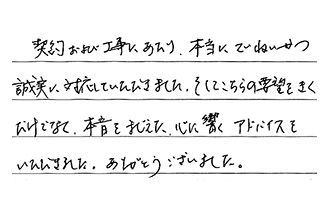 契約および工事にあたり、本当にていねいかつ
誠実に対応していただきました。そしてこちらの要望をきく
だけでなく、本音をまじえた、心に響くアドバイスを
いただきました。ありがとうございました。